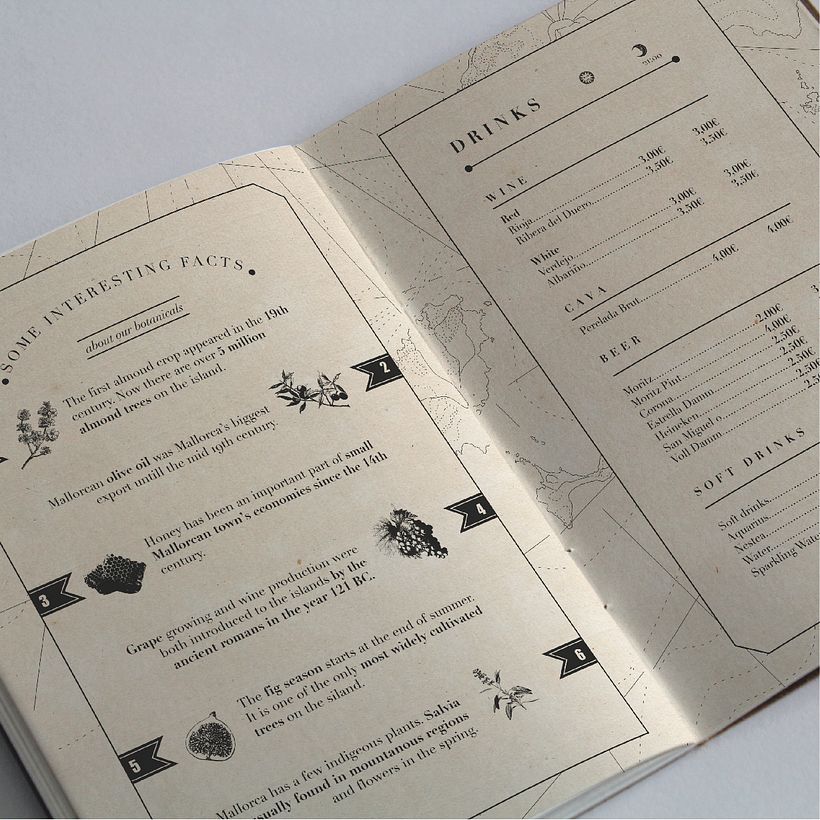 SOME INTERESTING FACTS
about our botanicals
The first almond crop appeared in the 19th
century. Now there are over 5 million
almond trees on the island.
2
Mallorcan olive oil was Mallorca's biggest
export untill the mid 19th century.
3
Honey has been an important part of small
Mallorcan town's economies since the 14th
century.
4
Grape growing and wine production were
both introduced to the islands by the
ancient romans in the year 121 BC..
5
The fig season starts at the end of summer.
It is one of the only most widely cultivated
trees on the siland.
6
Mallorca has a few indigeous plants. Salvia
usually found in mountanous regions
and flowers in the spring.
DRINKS
WINE
Red
Rioja 3,00€ 3,00€
Ribera del Duero 3,50€ 3,50€
White
Verdejo 3,00€ 3,00€
Albariño 3,50€ 3,50€
CAVA
Perelada Brut 4,00€ 4,00€
BEER
Moritz 2,00€
Moritz Pint 4,00€
Corona 2,50€
Estrella Damm 2,50€
Heineken 2,50€
San Miguel 0 2,50€
Voll Damm 2,50€
SOFT DRINKS
Soft drinks
Aquarius
Nestea
Water
Sparkling Water